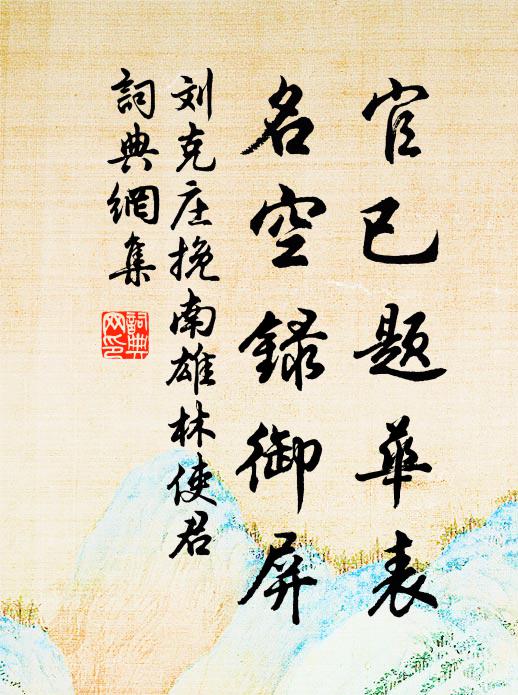 官已题華表
名空録御屏
刘克庄挽南雄林使君
詞典網集
詞典網印